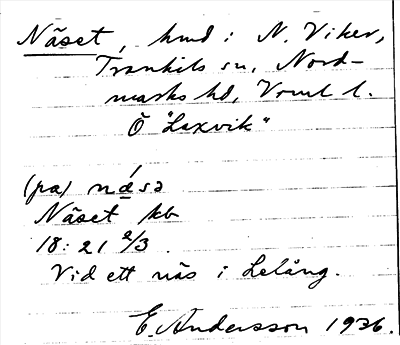 Näset, hmd: N. Viker,
Trankils sn, Nord-
marks hd, Vrml l.
Ö "Laxvik"
(pa) násə
Näset kb
18: 21 2/3.
Vid ett näs i Lelång.
E. Andersson 1926.